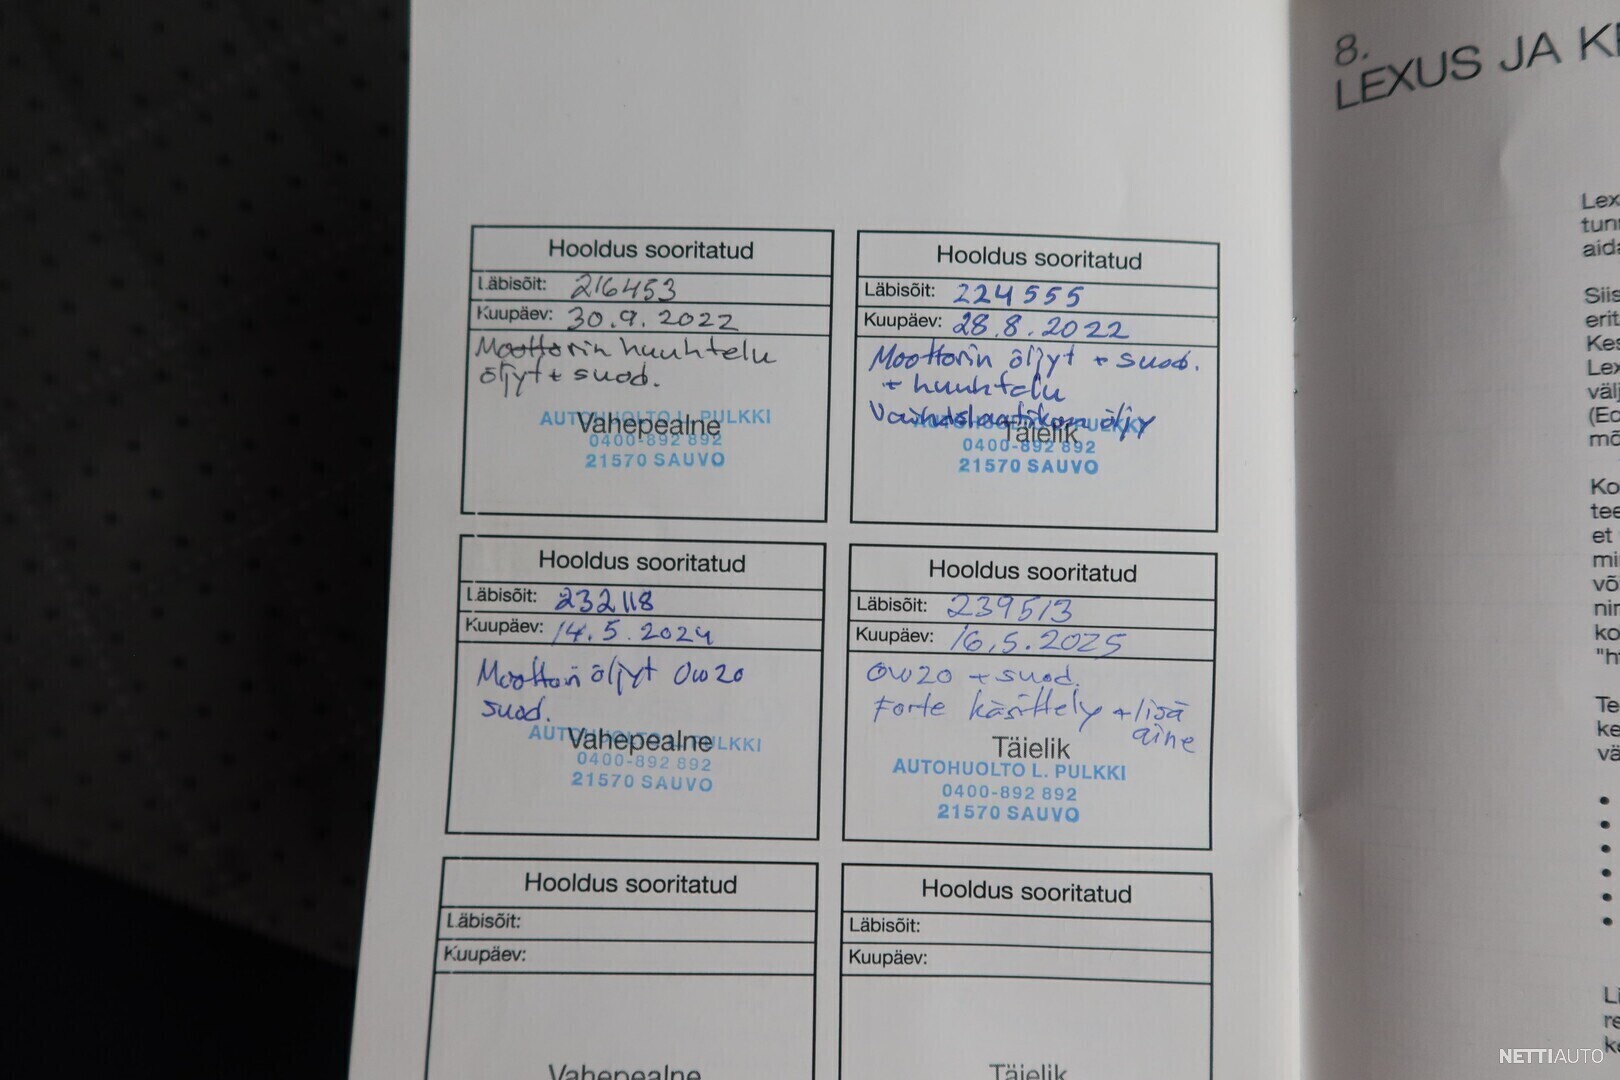 Hooldus sooritatud
Läbisõit: 216453
Kuupäev: 30.9.2022
Moottorin huuhtelu
öljyt + suod.
AUTOHUOLTO L. PULKKI
Vahepealne
0400-892 892
21570 SAUVO
Hooldus sooritatud
Läbisõit: 224555
Kuupäev: 28.8.2022
Moottorin öljyt + suod.
+ huuhtelu
Vaihdelaatikon öljy
PULKKI
Täielik
0400-892 892
21570 SAUVO
Hooldus sooritatud
Läbisõit: 232118
Kuupäev: 14.5.2024
Moottorin öljyt 0w20
suod.
AUTOHUOLTO L. PULKKI
Vahepealne
0400-892 892
21570 SAUVO
Hooldus sooritatud
Läbisõit: 239513
Kuupäev: 16.5.2025
0w20 + suod.
Forte käsittely + lisä
aine
Täielik
AUTOHUOLTO L. PULKKI
0400-892 892
21570 SAUVO
Hooldus sooritatud
Läbisõit:
Kuupäev:
Vahepealne
Hooldus sooritatud
Läbisõit:
Kuupäev:
Täielik
8.
LEXUS JA
NETTIAUTO